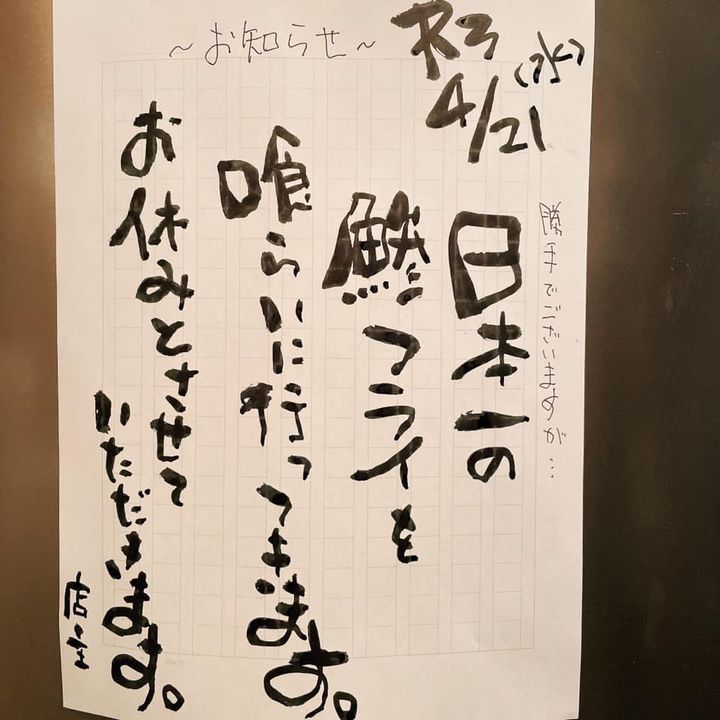 ～お知らせ～
R3
4/21(水)
勝手でございますが…
日本一の
鯵フライを
喰らいに行ってきます。
お休みとさせて
いただきます。
店主